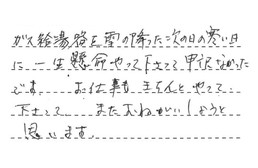 ガス給湯器を雪の降った次の日の寒い日
に一生懸命やって下さって申し訳なかった
です。お仕事もきちんとやって
下さって、またおねがいしようと
思います。